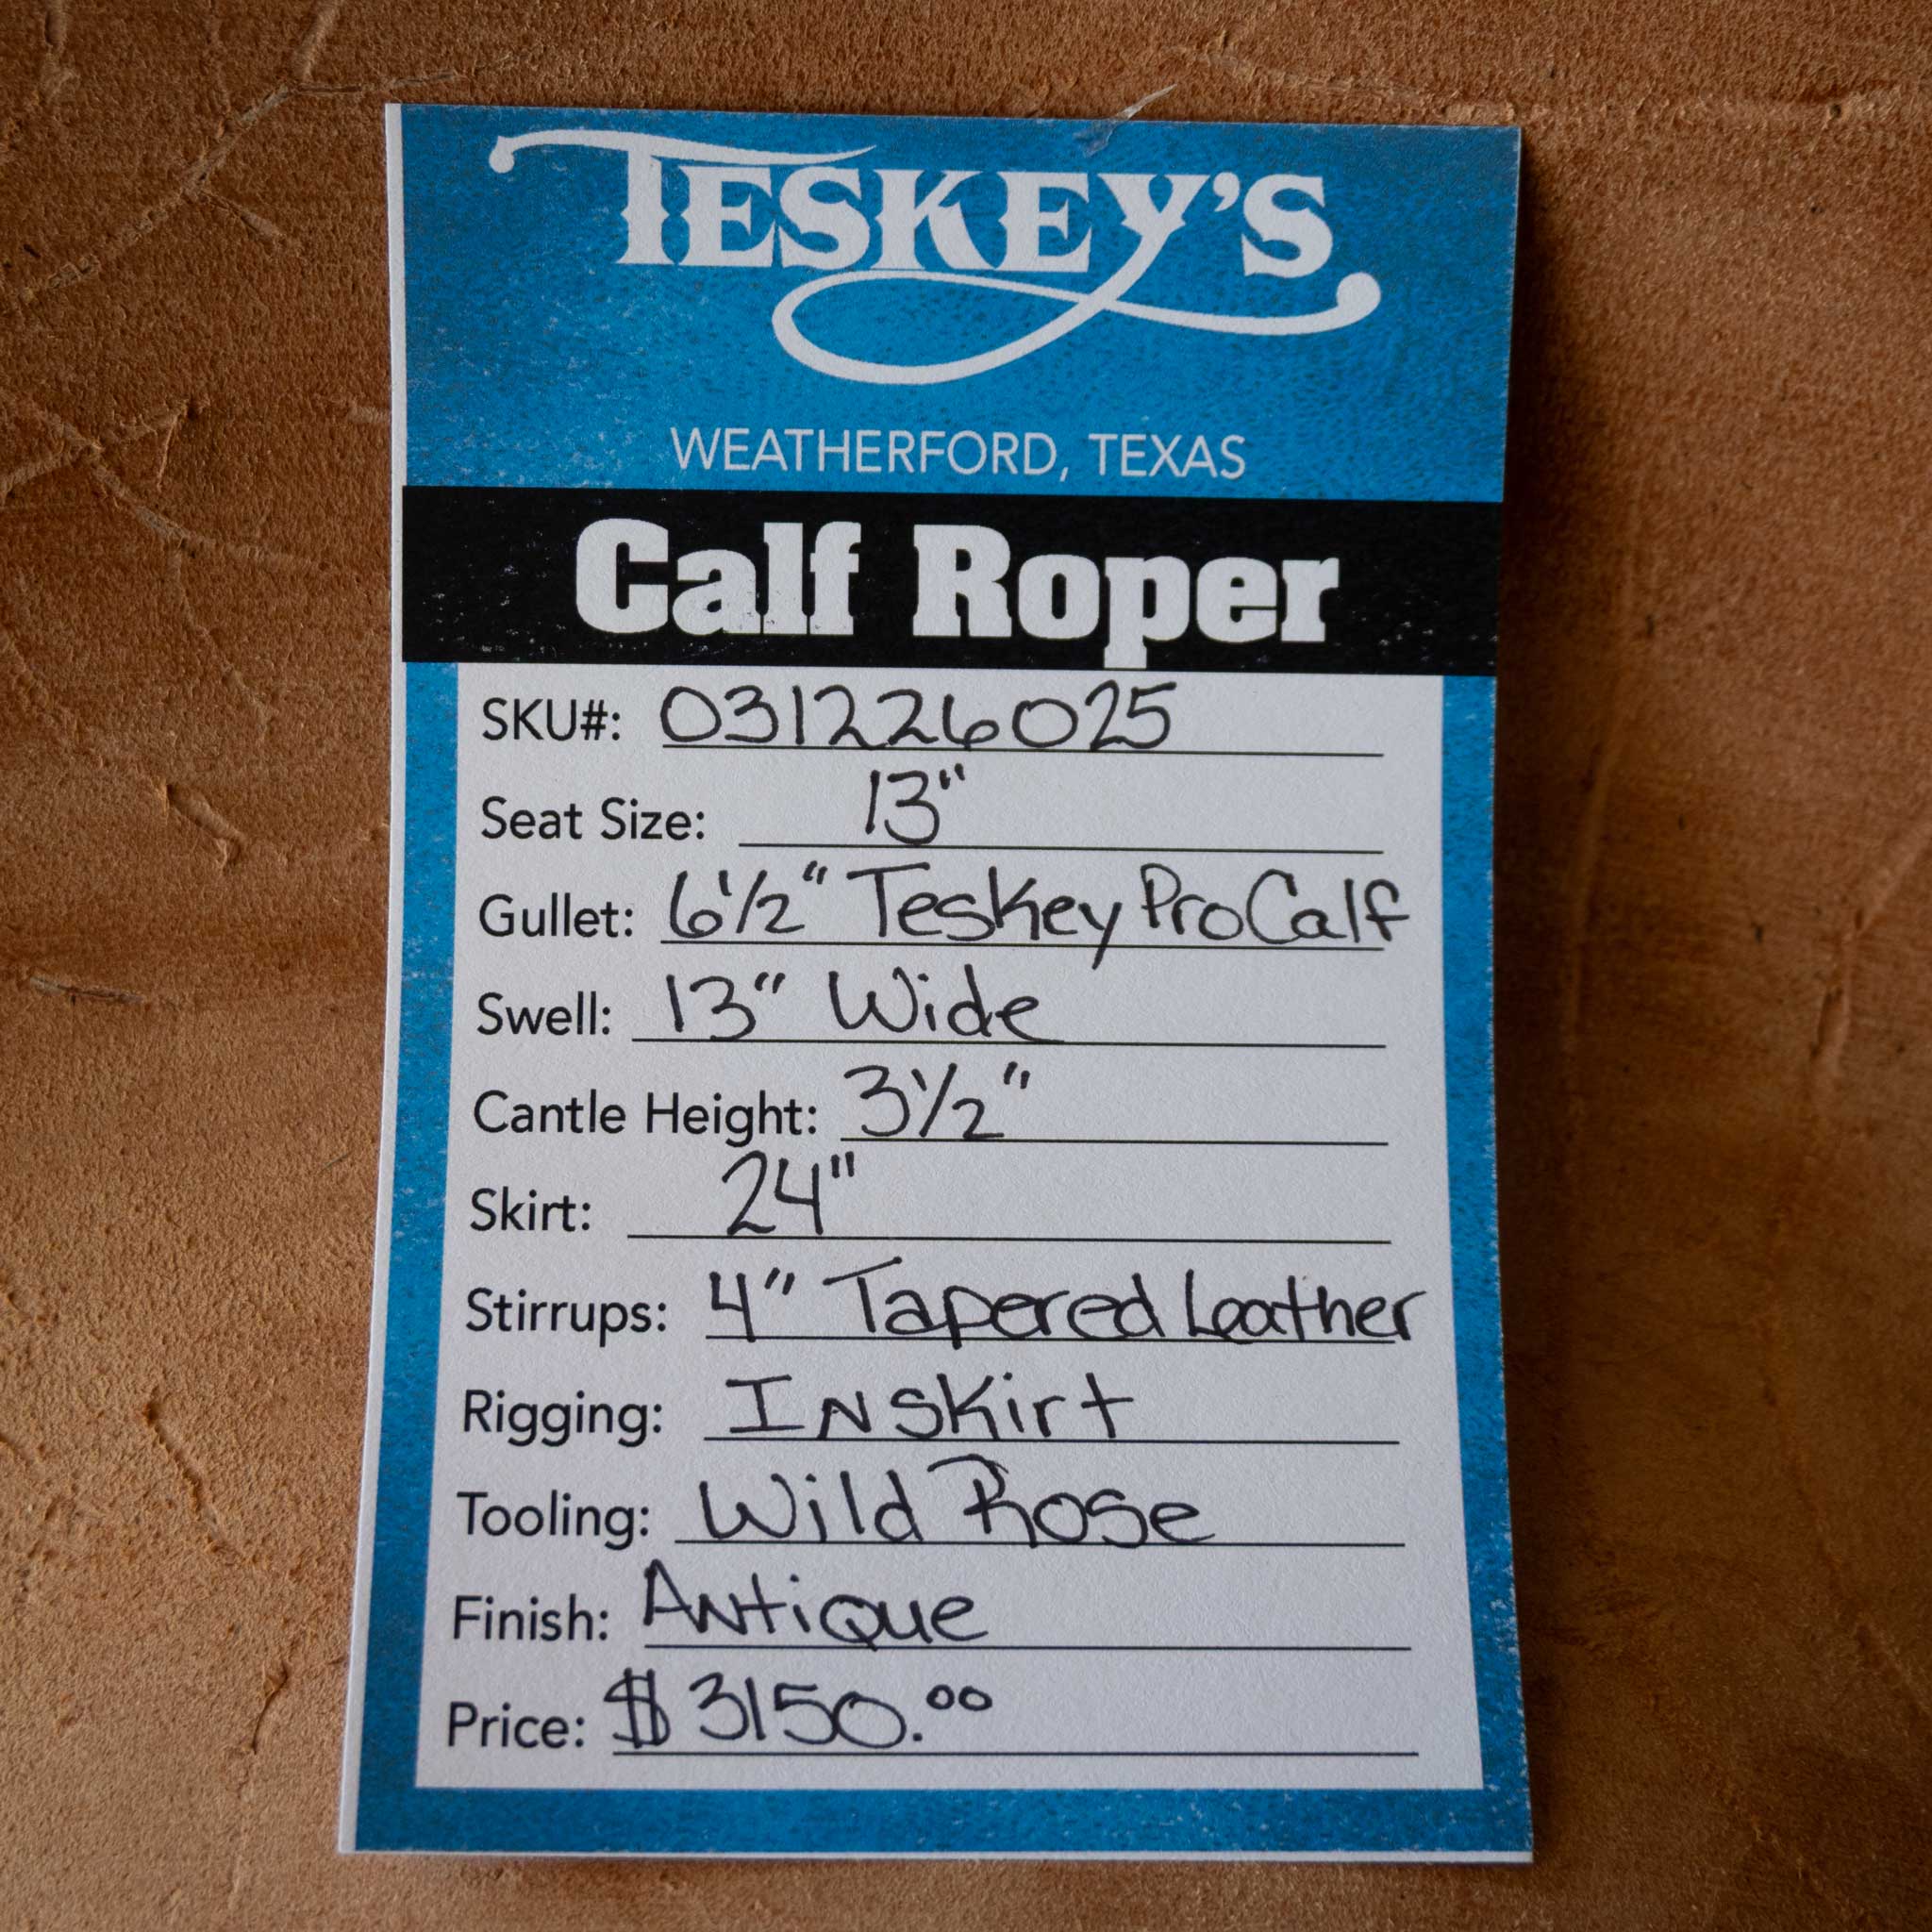 TESKEY'S
WEATHERFORD, TEXAS
Calf Roper
SKU#: 031226025
Seat Size: 13"
Gullet: 6 1/2" Teskey Pro Calf
Swell: 13" Wide
Cantle Height: 3 1/2"
Skirt: 24"
Stirrups: 4" Tapered Leather
Rigging: INskirt
Tooling: Wild Rose
Finish: ANtique
Price: $3150.00